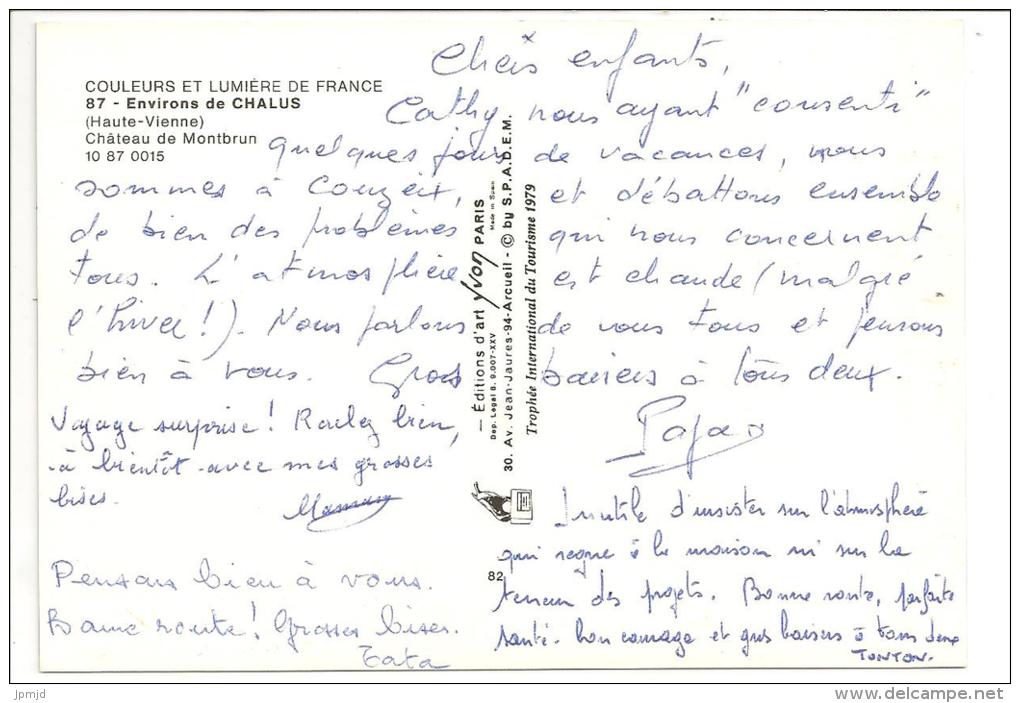 COULEURS ET LUMIÈRE DE FRANCE
87 - Environs de CHALUS
(Haute-Vienne)
Château de Montbrun
10 87 0015
Chers enfants,
Cathy nous ayant "consenti"
quelques jours de vacances, nous
sommes à Couzeix, et débattons ensemble
de bien des problèmes qui nous concernent
tous. L'atmosphère est chaude (malgré
l'hiver!). Nous parlons de vous tous et pensons
bien à vous. Gros baisers à tous deux.
Papa
Voyage surprise! Roulez bien,
à bientôt avec mes grosses
bises.
Maman
Pensons bien à vous.
Bonne route! Grosses bises.
Tata
Inutile d'insister sur l'atmosphère
qui règne à la maison ni sur la
teneur des projets. Bonne route, parfaite
santé. bon courage et gros baisers à tous deux
TONTON.
— Éditions d'art yvon PARIS
Made in Spain
Dep. Legal B. 9.007-XXV
30. Av. Jean-Jaures-94-Arcueil - © by S.P.A.D.E.M.
Trophée International du Tourisme 1979
82
jpmjd
www.delcampe.net